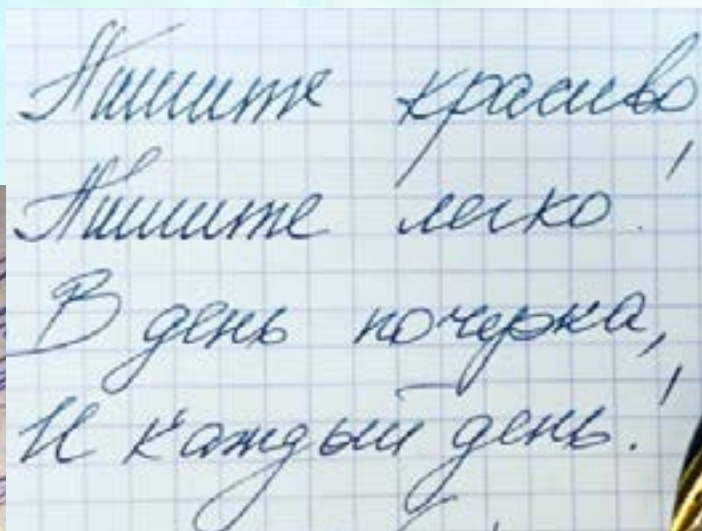 Пишите красиво,
Пишите легко!
В день почерка,
И каждый день!